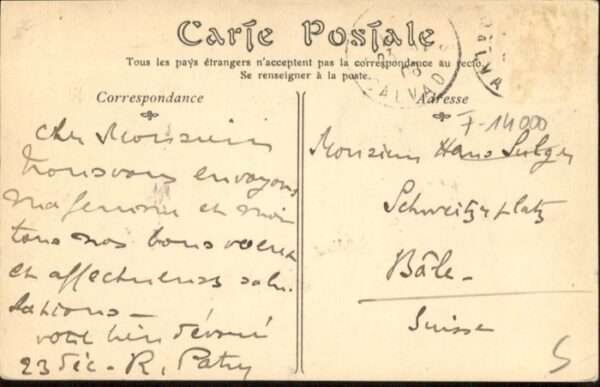 Carte Postale
Tous les pays étrangers n'acceptent pas la correspondance au recto.
Se renseigner à la poste.
Correspondance
Adresse
CALVAD
F-14000
Cher Monsieur
Nous vous envoyons
ma femme et moi
tous nos bons voeux
et affectueuses salu-
tations -
votre bien dévoué
23 déc - R. Patry
Monsieur Hans Sulger
Schweitzerplatz
Bâle -
Suisse